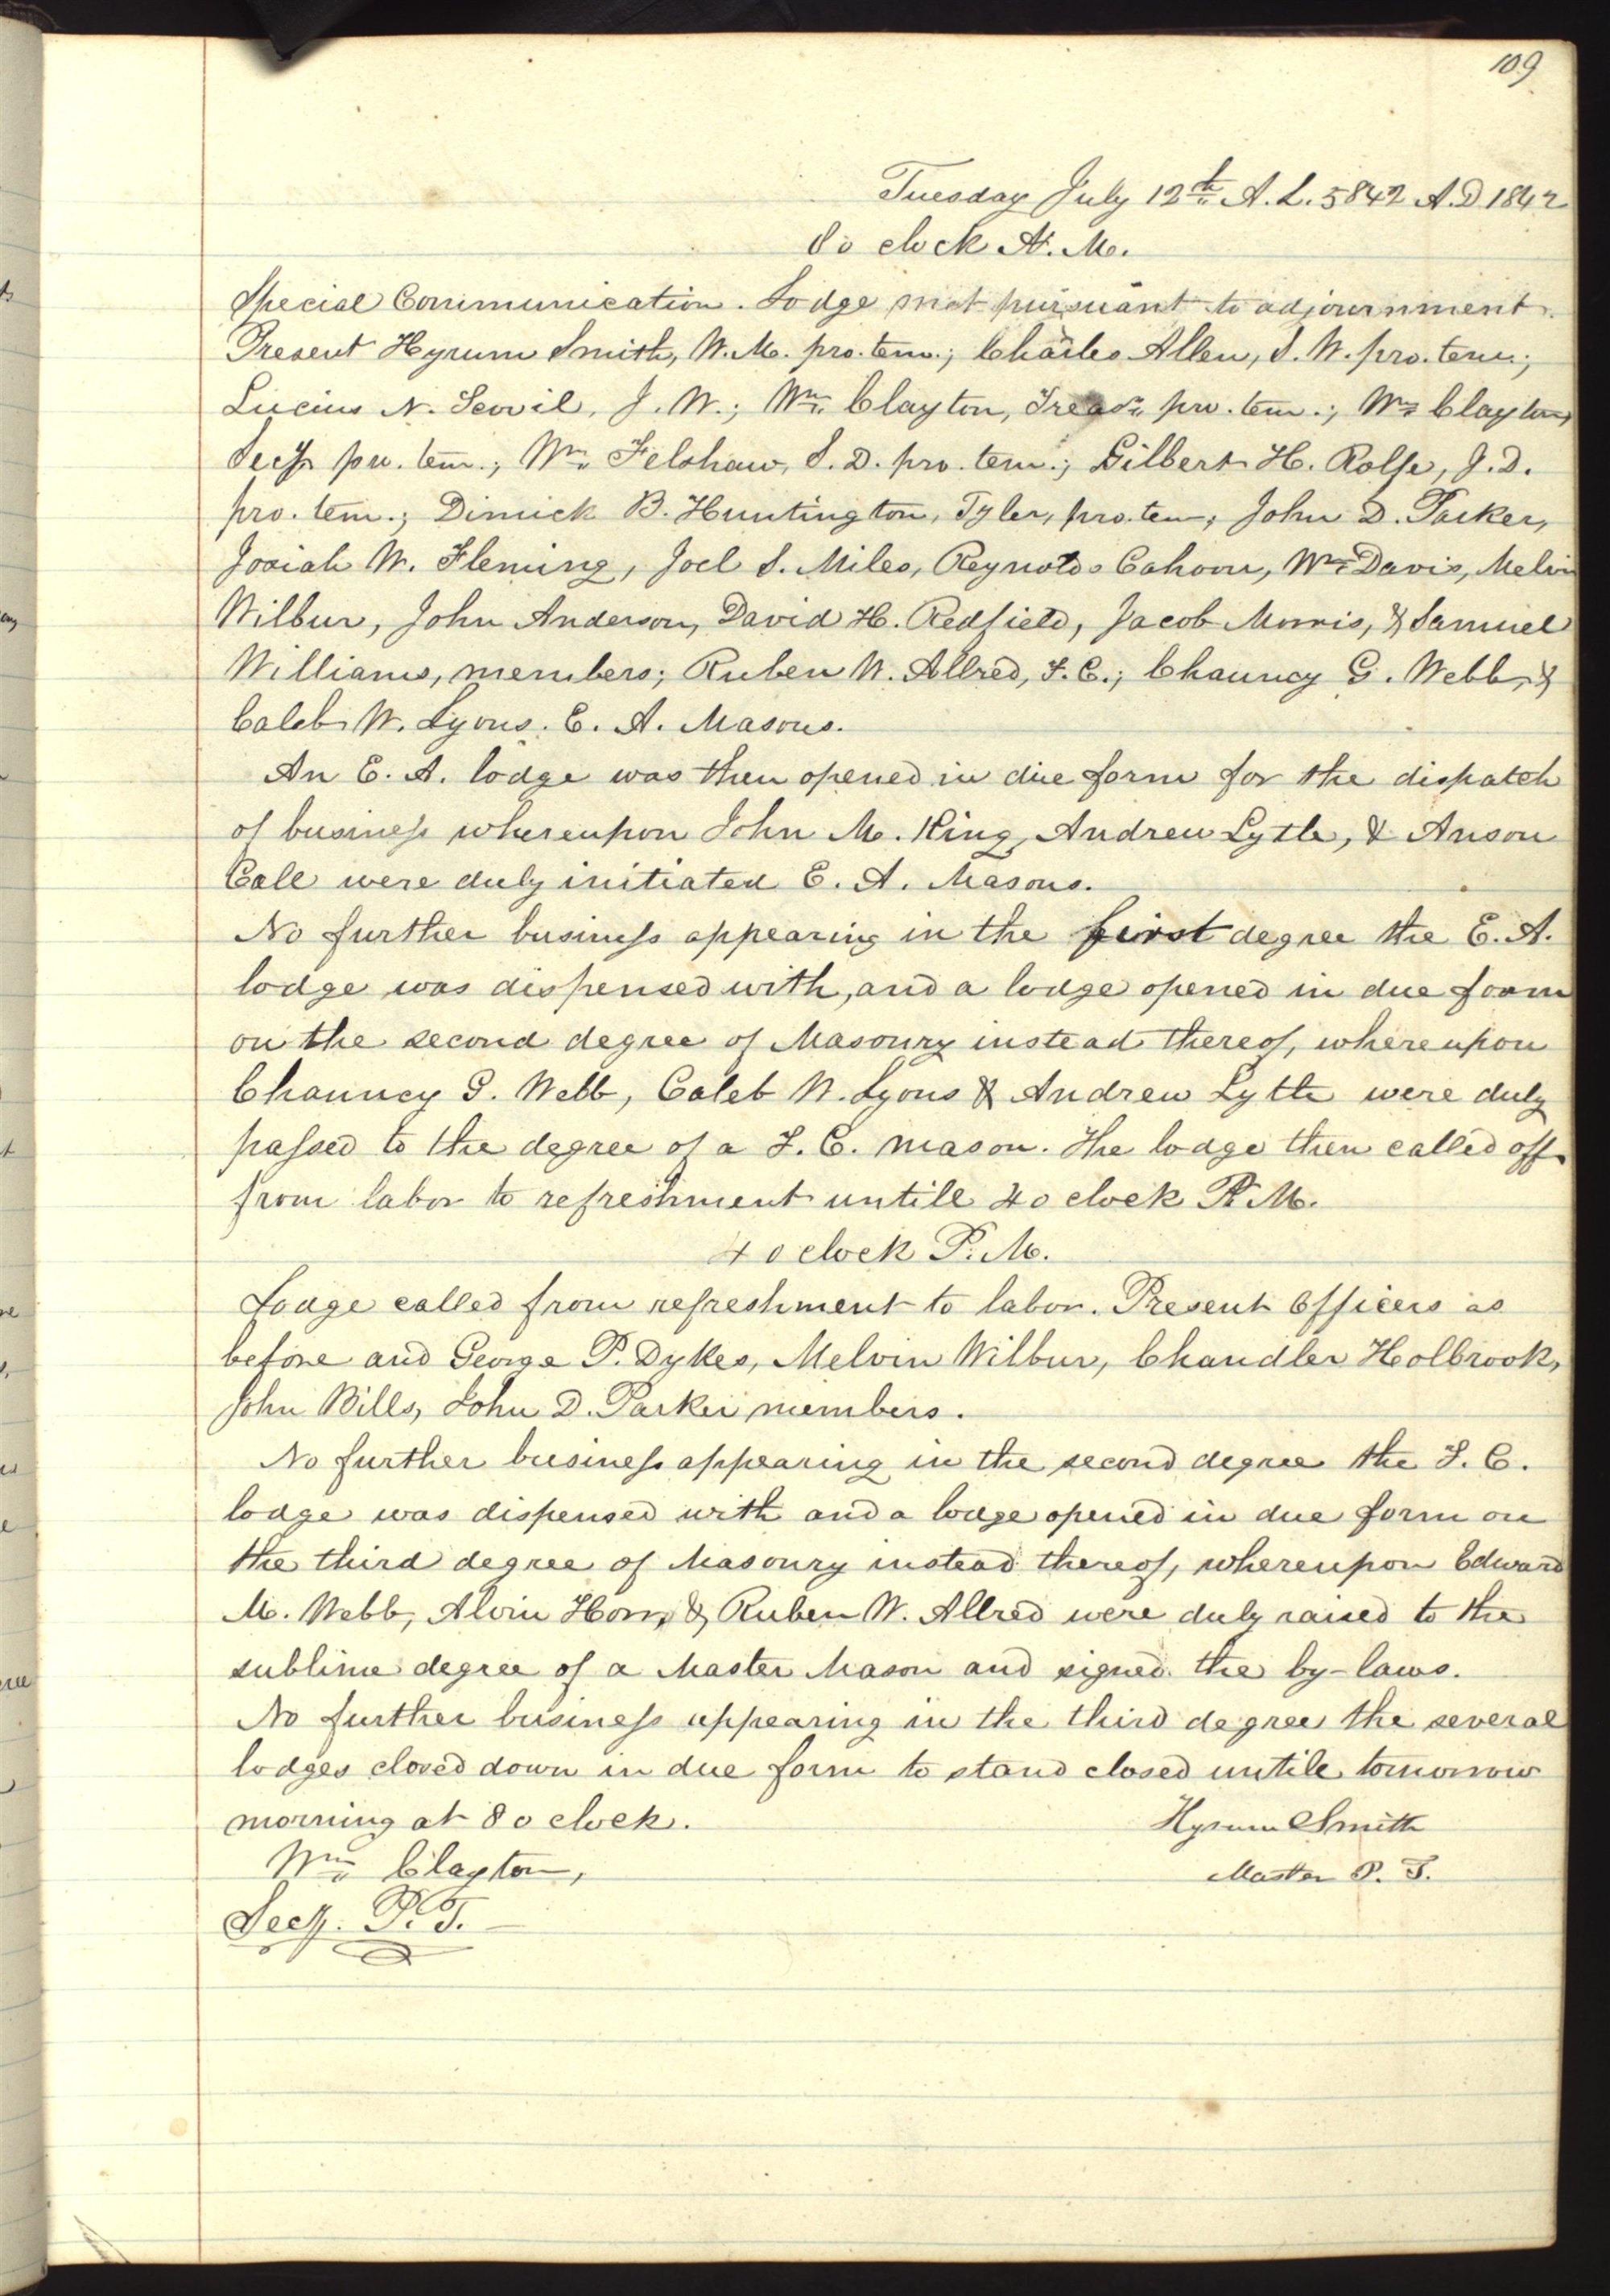 109
Tuesday July 12th A. L. 5842 A.D 1842
8 o clock A. M.
Special Communication. Lodge met pursuant to adjournment.
Present Hyrum Smith, W. M. pro. tem.; Charles Allen, S. W. pro. tem.;
Lucius N. Scovil, J. W.; Wm. Clayton, Treasr. pro. tem.; Wm. Clayton,
Secy. pro. tem.; Wm. Felshaw, S. D. pro. tem.; Gilbert H. Rolfe, J. D.
pro. tem.; Dimick B. Huntington, Tyler, pro. tem; John D. Parker,
Josiah W. Fleming, Joel S. Miles, Reynolds Cahoon, Wm. Davis, Melvin
Wilbur, John Anderson, David H. Redfield, Jacob Morris, & Samuel
Williams, members; Ruben W. Allred, F. C.; Chauncy G. Webb, &
Caleb W. Lyons. E. A. Masons.
An E. A. lodge was then opened in due form for the dispatch
of business whereupon John M. King, Andrew Lytle, & Anson
Call were duly initiated E. A. Masons.
No further business appearing in the first degree the E. A.
lodge was dispensed with, and a lodge opened in due form
on the second degree of Masonry instead thereof, whereupon
Chauncy G. Webb, Caleb W. Lyons & Andrew Lytle were duly
passed to the degree of a F. C. mason. The lodge then called off
from labor to refreshment untill 4 o clock P. M.
4 o clock P. M.
Lodge called from refreshment to labor. Present Officers as
before and George P. Dykes, Melvin Wilbur, Chandler Holbrook,
John Bills, John D. Parker members.
No further business appearing in the second degree the F. C.
lodge was dispensed with and a lodge opened in due form on
the third degree of Masonry instead thereof, whereupon Edward
M. Webb, Alvin Horr, & Ruben W. Allred were duly raised to the
sublime degree of a Master Mason and signed the by-laws.
No further business appearing in the third degree the several
lodges closed down in due form to stand closed untile tomorrow
morning at 8 o clock.
Hyrum Smith
Wm. Clayton,
Master P. T.
Secy. P. T.